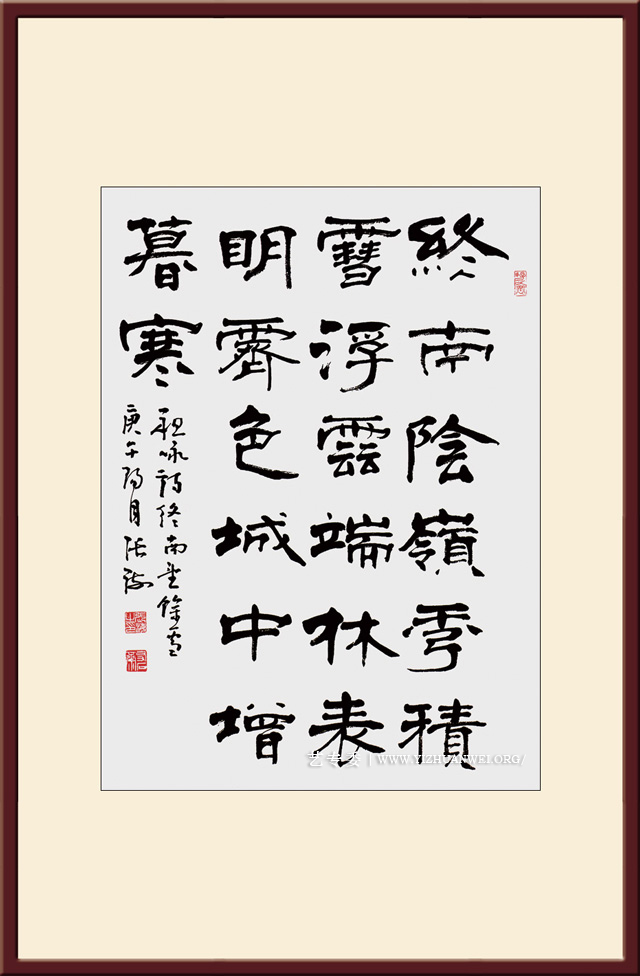 終南陰嶺秀積
雪浮雲端林表
明霽色城中增
暮寒
祖咏詩終南望餘雪
庚午陽月張
艺专委 | WWW.YIZHUANWEI.ORG/